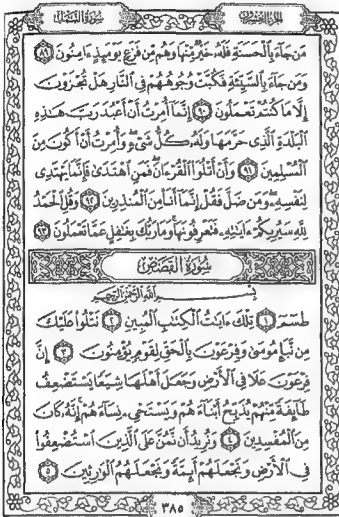 الجزء العشرون سورة النمل
مَن جَآءَ بِٱلْحَسَنَةِ فَلَهُۥ خَيْرٌ مِّنْهَا وَهُم مِّن فَزَعٍ يَوْمَئِذٍ ءَامِنُونَ ٨٩
وَمَن جَآءَ بِٱلسَّيِّئَةِ فَكُبَّتْ وُجُوهُهُمْ فِى ٱلنَّارِ هَلْ تُجْزَوْنَ
إِلَّا مَا كُنتُمْ تَعْمَلُونَ ٩٠ إِنَّمَآ أُمِرْتُ أَنْ أَعْبُدَ رَبَّ هَـٰذِهِ
ٱلْبَلْدَةِ ٱلَّذِى حَرَّمَهَا وَلَهُۥ كُلُّ شَىْءٍ وَأُمِرْتُ أَنْ أَكُونَ مِنَ
ٱلْمُسْلِمِينَ ٩١ وَأَنْ أَتْلُوَا۟ ٱلْقُرْءَانَ فَمَنِ ٱهْتَدَىٰ فَإِنَّمَا يَهْتَدِى
لِنَفْسِهِۦ وَمَن ضَلَّ فَقُلْ إِنَّمَآ أَنَا۠ مِنَ ٱلْمُنذِرِينَ ٩٢ وَقُلِ ٱلْحَمْدُ
لِلَّهِ سَيُرِيكُمْ ءَايَـٰتِهِۦ فَتَعْرِفُونَهَا وَمَا رَبُّكَ بِغَـٰفِلٍ عَمَّا تَعْمَلُونَ ٩٣
سُورَةُ الْقَصَصِ
بِسْمِ ٱللَّهِ ٱلرَّحْمَـٰنِ ٱلرَّحِيمِ
طسٓمٓ ١ تِلْكَ ءَايَـٰتُ ٱلْكِتَـٰبِ ٱلْمُبِينِ ٢ نَتْلُوا۟ عَلَيْكَ
مِن نَّبَإِ مُوسَىٰ وَفِرْعَوْنَ بِٱلْحَقِّ لِقَوْمٍ يُؤْمِنُونَ ٣ إِنَّ
فِرْعَوْنَ عَلَا فِى ٱلْأَرْضِ وَجَعَلَ أَهْلَهَا شِيَعًا يَسْتَضْعِفُ
طَآئِفَةً مِّنْهُمْ يُذَبِّحُ أَبْنَآءَهُمْ وَيَسْتَحْىِۦ نِسَآءَهُمْ إِنَّهُۥ كَانَ
مِنَ ٱلْمُفْسِدِينَ ٤ وَنُرِيدُ أَن نَّمُنَّ عَلَى ٱلَّذِينَ ٱسْتُضْعِفُوا۟
فِى ٱلْأَرْضِ وَنَجْعَلَهُمْ أَئِمَّةً وَنَجْعَلَهُمُ ٱلْوَٰرِثِينَ ٥
٣٨٥